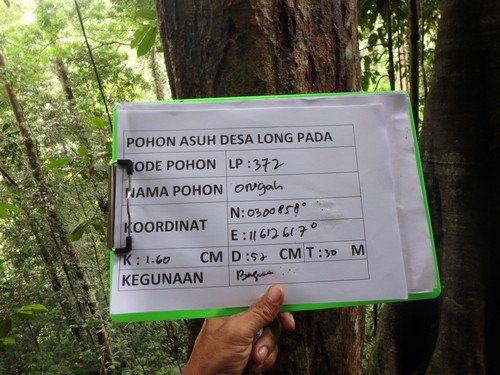 POHON ASUH DESA LONG PADA
KODE POHON LP : 372
NAMA POHON
KOORDINAT N: 0300858°
E : 11612617°
K : 1.60 CM D : 52 CM T : 30 M
KEGUNAAN